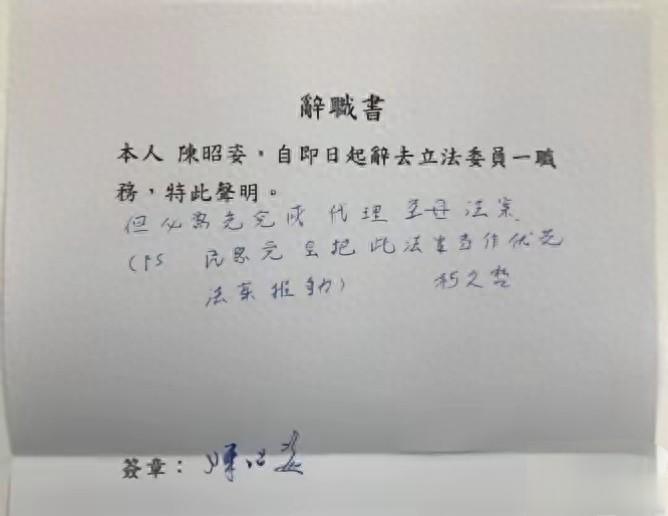 辭職書
本人 陳昭姿，自即日起辭去立法委員一職
務，特此聲明。
但必需先完成 代理孕母法案
(PS 民眾党 会把此法案当作优先
法案推動) 柯文哲
簽章：陳昭姿